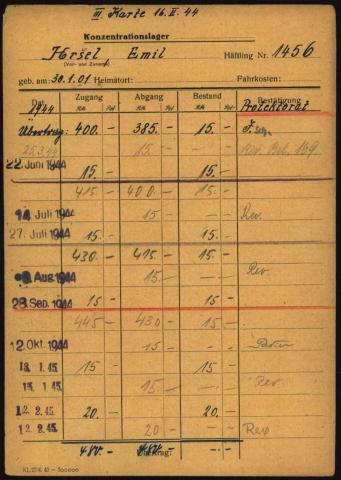 III. Karte 16. II. 44
Konzentrationslager
Horšel Emil
(Vor- und Zuname)
Häftling-Nr. 1456
geb. am: 30.1.01 Heimatort: Fahrkosten:
Dat. Zugang Abgang Bestand Bestätigung
RM Rpf RM Rpf RM Rpf Protektorat
1944
Übertrag: 400.- 385.- 15.-
25.3.44 15.-
22. Juni 1944 15.- 15.-
415.- 400.- 15.-
14. Juli 1944 15.- Rev.
27. Juli 1944 15.- 15.-
430.- 415.- 15.-
Aug. 1944 15.- Rev.
28. Sep. 1944 15.- 15.-
445.- 430.- 15.-
12. Okt. 1944 15.-
1.45 15.- 15.-
1.45. 15.- Rev.
12.2.45 20.- 20.-
12.2.45 20.- Rev
480.- 480.-
Übertrag: